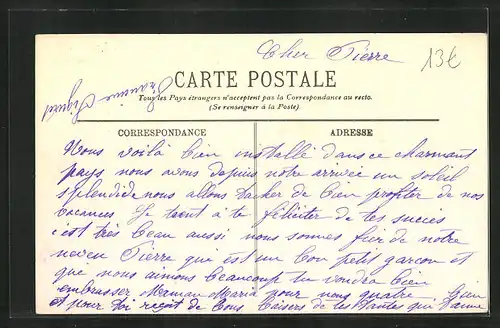 Cher Pierre
13€
Francine
CARTE POSTALE
Tous les Pays étrangers n'acceptent pas la Correspondance au recto.
(Se renseigner à la Poste).
CORRESPONDANCE
ADRESSE
Nous voilà bien installé dans ce charmant
pays nous avons depuis notre arrivée un soleil
splendide nous allons tacher de bien profiter de nos
vacances Je tient à te féliciter de tes succes
c'est très beau aussi nous sommes fier de notre
neveu Pierre qui est un bon petit garçon et
que nous aimons beaucoup tu voudra bien
embrasser Maman Maria pour nous quatre
et pour toi reçoit de bons baisers de tes tantes qui t'aime bien